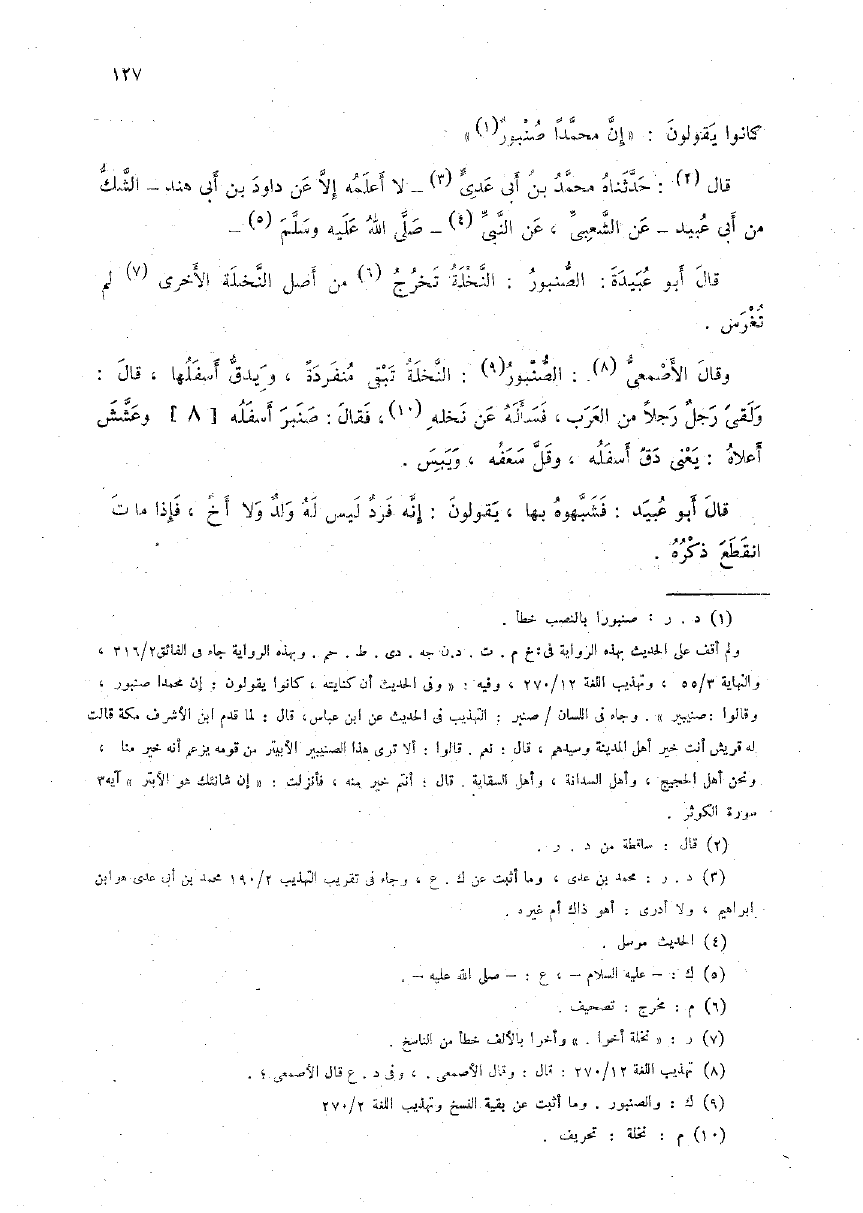 ١٢٧
كانوا يَقولونَ : «إنَّ محمَّداً صُنْبورٌ(١)»
قال (٢) : حَدَّثَناهُ محمَّدُ بنُ أبى عَدِىٍّ (٣) ــ لا أَعلَمُه إلاَّ عَن داودَ بن أبى هند ــ الشَّكُّ
من أبى عُبيد ــ عَن الشَّعبِىِّ ، عَن النَّبىِّ (٤) ــ صَلَّى اللهُ عَلَيه وسَلَّمَ (٥) ــ
قالَ أبو عُبَيدَةَ : الصُّنبورُ : النَّخْلَةُ تَخرُجُ (٦) من أَصل النَّخلَة الأَخرى (٧) لم
تُغْرَسْ .
وقالَ الأَصْمعىُّ (٨) : الصُّنْبورُ(٩) : النَّخلَةُ تَبْقى مُنفَردَةً ، وَيدقُّ أسفَلُها ، قالَ :
وَلَقىَ رَجلٌ رَجلاً من العَرَب ، فَسَألَهُ عَن نَخله (١٠) ، فَقالَ : صَنبَرَ أَسفَلُه [ ٨ ] وعَشَّشَ
أعلاهُ : يَعْنى دَقَّ أسفَلُه ، وقَلَّ سَعَفُه ، وَيَبِسَ .
قالَ أبو عُبيَد : فَشَبَّهوهُ بها ، يَقولونَ : إنَّه فَردٌ لَيس لَهُ وَلدٌ وَلا أَخٌ ، فَإذا ماتَ
انقَطَعَ ذكْرُهُ .
(١) د . ر : صنبورا بالنصب خطأ .
ولم أقف على الحديث بهذه الرواية فى:خ م . ت . د.ن جه . دى . ط . حم . وبهذه الرواية جاء فى الفائق٣١٦/٢ ،
والنهاية ٥٥/٣ ، وتهذيب اللغة ٢٧٠/١٢ ، وفيه : « وفى الحديث أن كنايته ، كانوا يقولون : إن محمدا صنبور ،
وقالوا :صنيبير » . وجاء فى اللسان / صنبر : التهذيب فى الحديث عن ابن عباس، قال : لما قدم ابن الأشرف مكة قالت
له قريش أنت خير أهل المدينة وسيدهم ، قال : نعم . قالوا : ألا ترى هذا الصنيبير الأبيتر من قومه يزعم أنه خير منا ،
ونحن أهل الحجيج ، وأهل السدانة ، وأهل السقاية . قال : أنتم خير منه ، فأنزلت : « إن شانئك هو الأبتر » آيه٣
سورة الكوثر .
(٢) قال : ساقطة من د . ر .
(٣) د . ر : محمد بن عدى ، وما أثبت عن ك . ع ، وجاء فى تقريب التهذيب ١٩٠/٢ محمد بن أبى عدى هو ابن
إبراهيم ، ولا أدرى : أهو ذاك أم غيره .
(٤) الحديث مرسل .
(٥) ك : – عليه السلام – ، ع : – صلى الله عليه – .
(٦) م : مخرج : تصحيف .
(٧) ر : « نخلة أخرا . » وأخرا بالألف خطأ من الناسخ .
(٨) تهذيب اللغة ٢٧٠/١٢ : قال : وقال الأصمعى . ، وفى د . ع قال الأصمعى ؛ .
(٩) ك : والصنبور . وما أثبت عن بقية النسخ وتهذيب اللغة ٢٧٠/٢
(١٠) م : نخلة : تحريف .